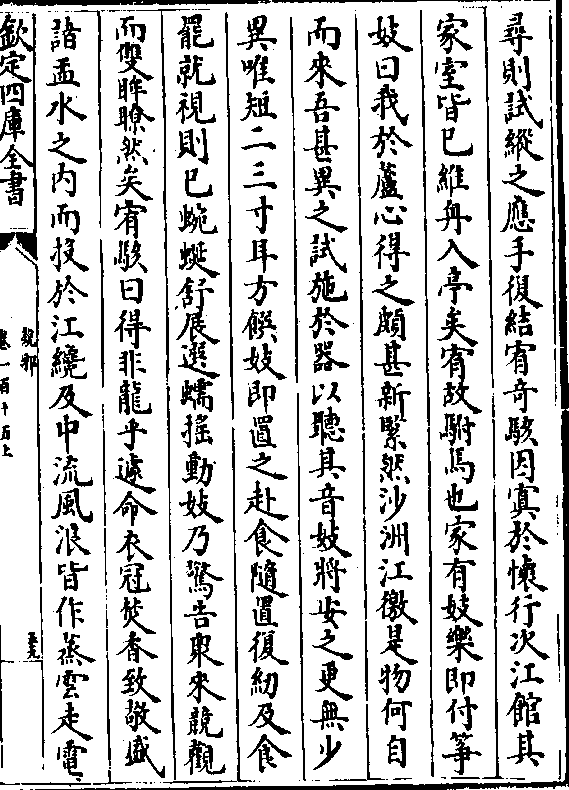 尋則試縱之應手復結宥奇駭因寘於懷行次江館其
家室皆已維舟入亭矣宥故駙馬也家有妓樂即付箏
妓曰我於蘆心得之頗甚新緊然沙洲江徼是物何自
而來吾甚異之試施於器以聽其音妓將安之更無少
異唯短二三寸耳方饌妓即置之赴食隨置復紉及食
罷就視則已蜿蜒舒展選蠕搖動妓乃驚告衆來競觀
而雙眸瞭然矣宥駭曰得非龍乎遽命衣冠焚香致敬盛
諸盂水之内而投於江纔及中流風浪皆作蒸雲走電
欽定四庫全書
說郛
卷一百十五上